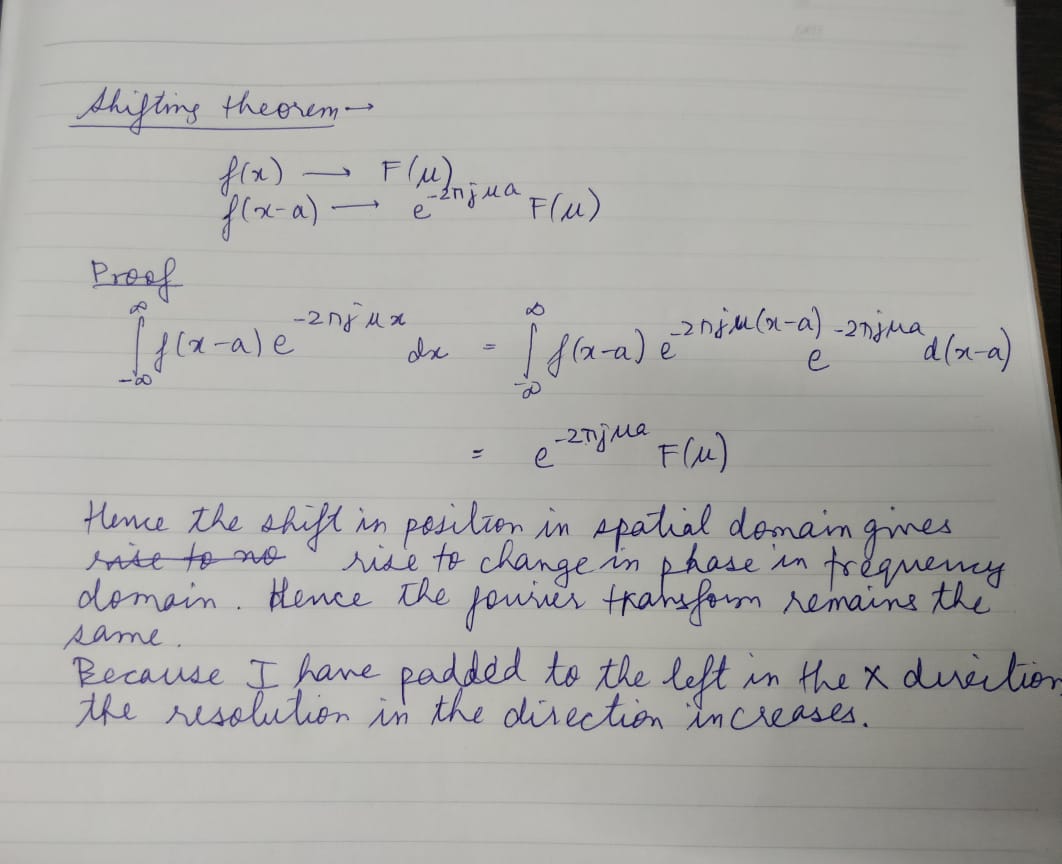 Shifting theorem →
f(x) → F(μ)
f(x-a) → e^{-2πjμa} F(μ)
Proof
∫_{-∞}^{∞} f(x-a) e^{-2πjμx} dx = ∫_{-∞}^{∞} f(x-a) e^{-2πjμ(x-a)} e^{-2πjμa} d(x-a)
= e^{-2πjμa} F(μ)
Hence the shift in position in spatial domain gives
rise to no rise to change in phase in frequency
domain. Hence the fourier transform remains the
same.
Because I have padded to the left in the X direction
the resolution in the direction increases.